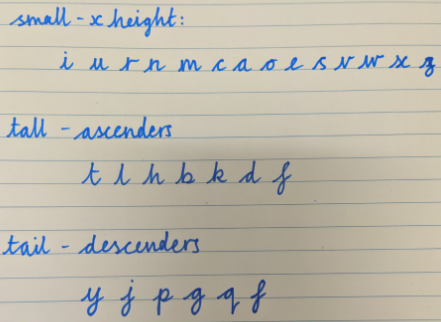 small - x height:
i u r n m c a o e s v w x z
tall - ascenders
t l h b k d f
tail - descenders
y j p g q f